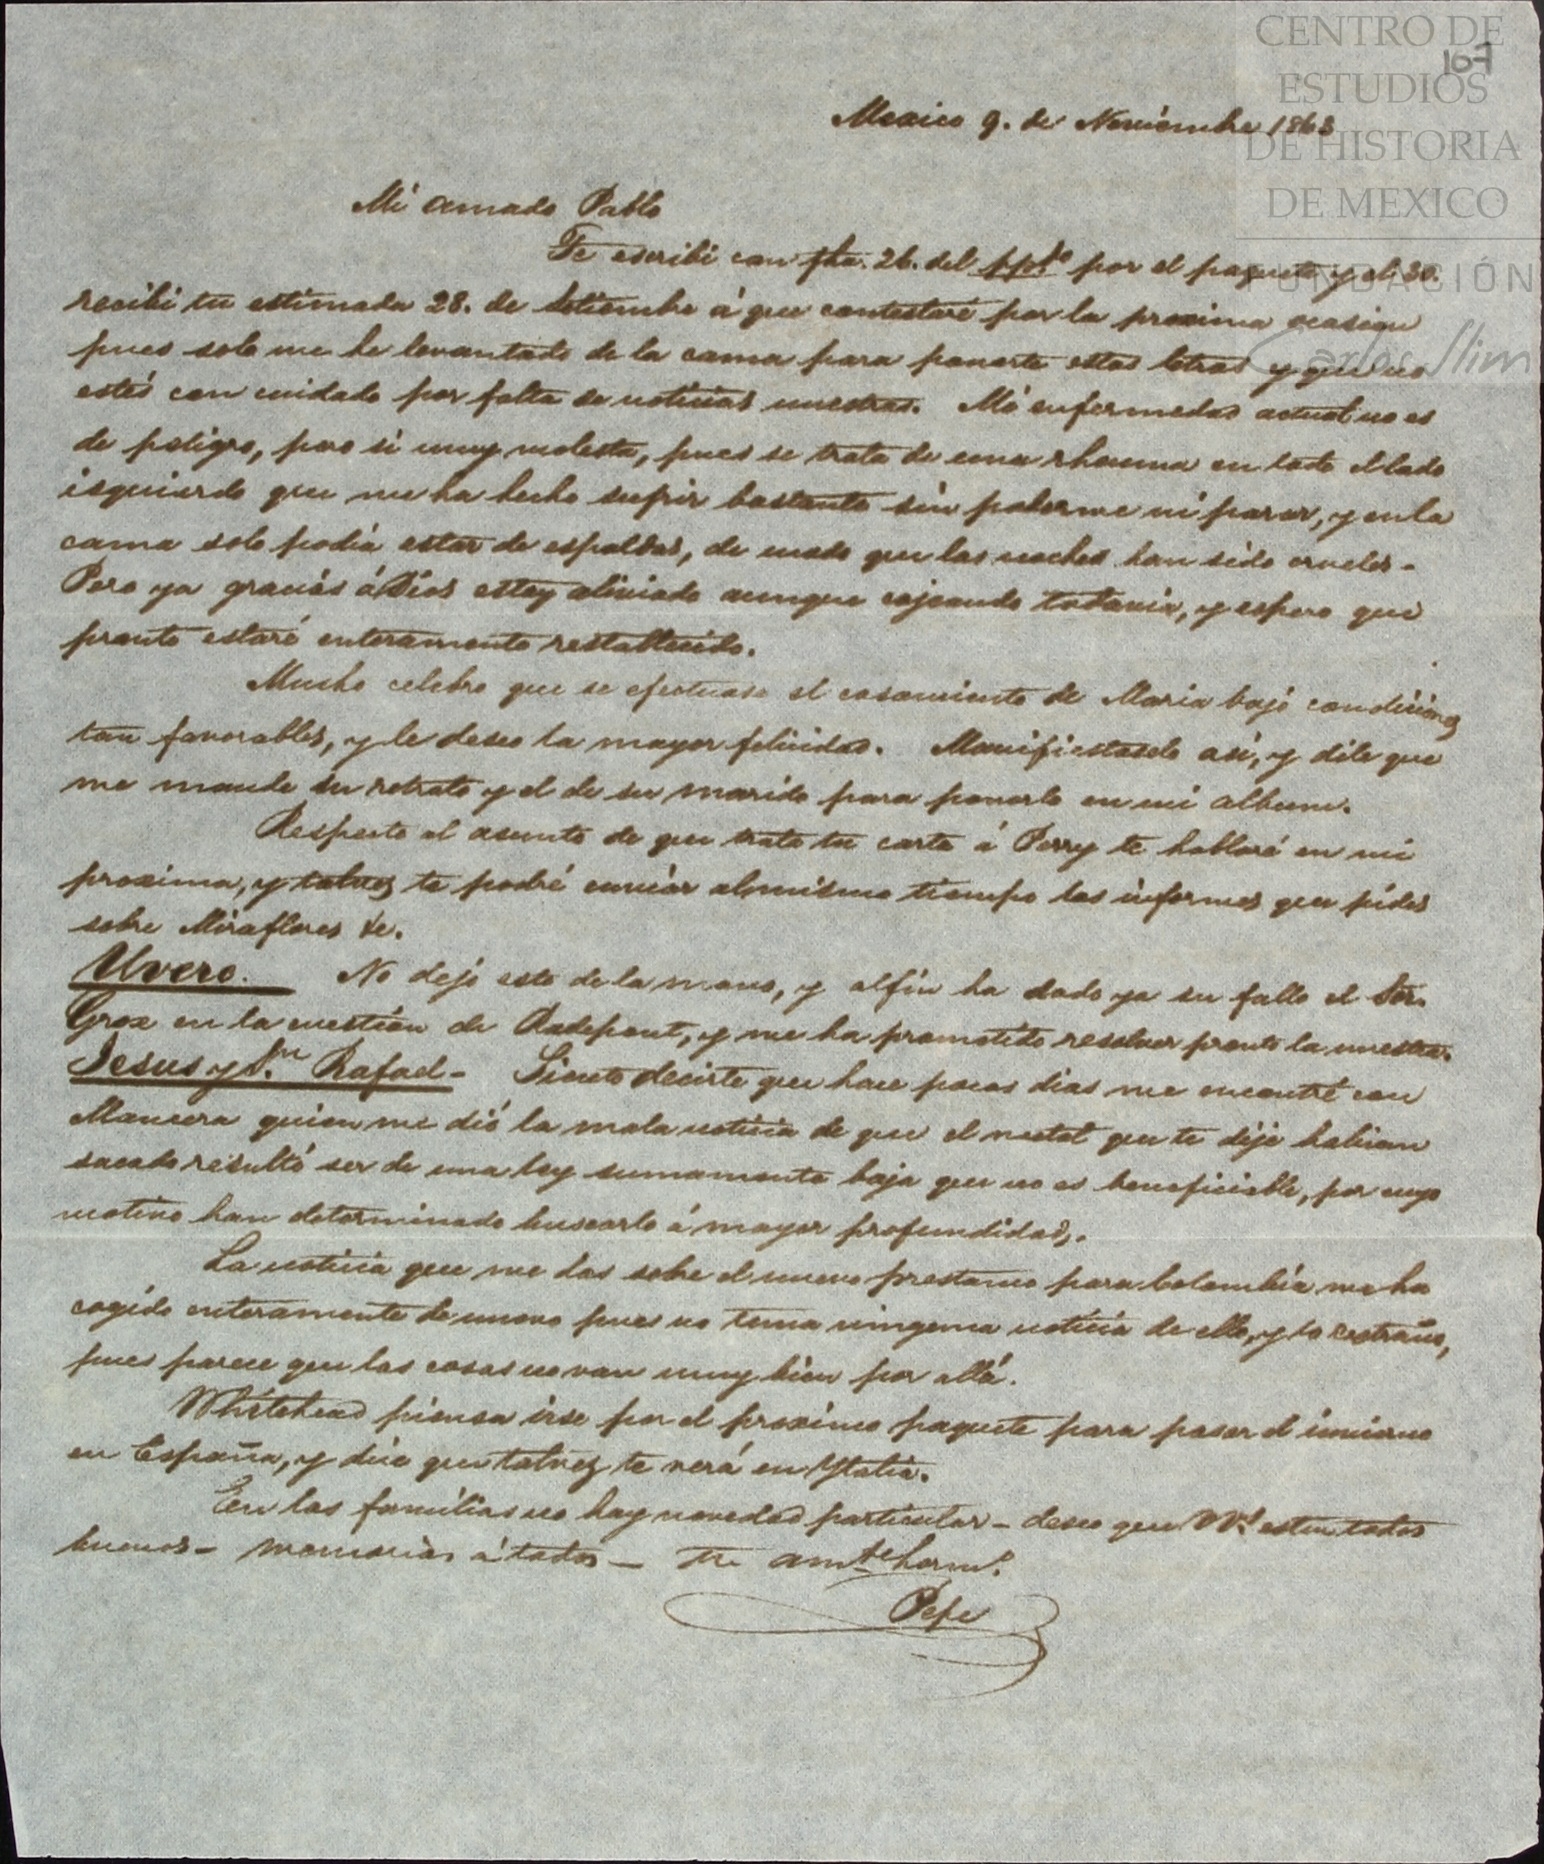 CENTRO DE
ESTUDIOS
DE HISTORIA
DE MEXICO
FUNDACIÓN
Carlos Slim
107
Mexico 9. de Noviembre 1863
Mi amado Pablo
Te escribi con fha. 26. del ppdo por el paquete y el 30.
recibi tu estimada 28. de Setiembre á que contestaré por la proxima ocasion
pues solo me he levantado de la cama para ponerte estas letras y que no
estés con cuidado por falta de noticias nuestras. Mi enfermedad actual no es
de peligro, pero si muy molesta, pues se trata de una rheuma en todo el lado
isquierdo que me ha hecho sufrir bastante sin poderme ni parar, y en la
cama solo podia estar de espaldas, de modo que las noches han sido crueles -
Pero ya gracias á Dios estoy aliviado aunque cojeando todavia, y espero que
pronto estaré enteramente restablecido.
Mucho celebro que se efectuase el casamiento de Maria bajo condiciones
tan favorables, y le deseo la mayor felicidad. Manifiestaselo asi, y dile que
me mande su retrato y el de su marido para ponerlo en mi album.
Respecto al asunto de que trata tu carta á Perry te hablaré en mi
proxima, y talvez te podré enviar al mismo tiempo los informes que pides
sobre Miraflores &c.
Uvero. No dejo esto de la mano, y alfin ha dado ya su fallo el Sor.
Grox en la cuestion de Radepont, y me ha prometido resolver pronto la nuestra.
Jesus y Sn. Rafael - Siento decirte que hace pocos dias me encontré con
Mancera quien me dió la mala noticia de que el metal que te dije habian
sacado resultó ser de una ley sumamente baja que no es beneficiable, por cuyo
motivo han determinado buscarlo á mayor profundidad.
La noticia que me das sobre el nuevo prestamo para Colombia me ha
cogido enteramente de nuevo pues no tenia ninguna noticia de ello, y lo extraño,
pues parece que las cosas no van muy bien por allá.
Whitehead piensa irse por el proximo paquete para pasar el invierno
en España, y dice que talvez te verá en Ytalia.
En las familias no hay novedad particular - deseo que VVs esten todos
buenos - memorias á todos - Tu amte. hermo.
Pepe